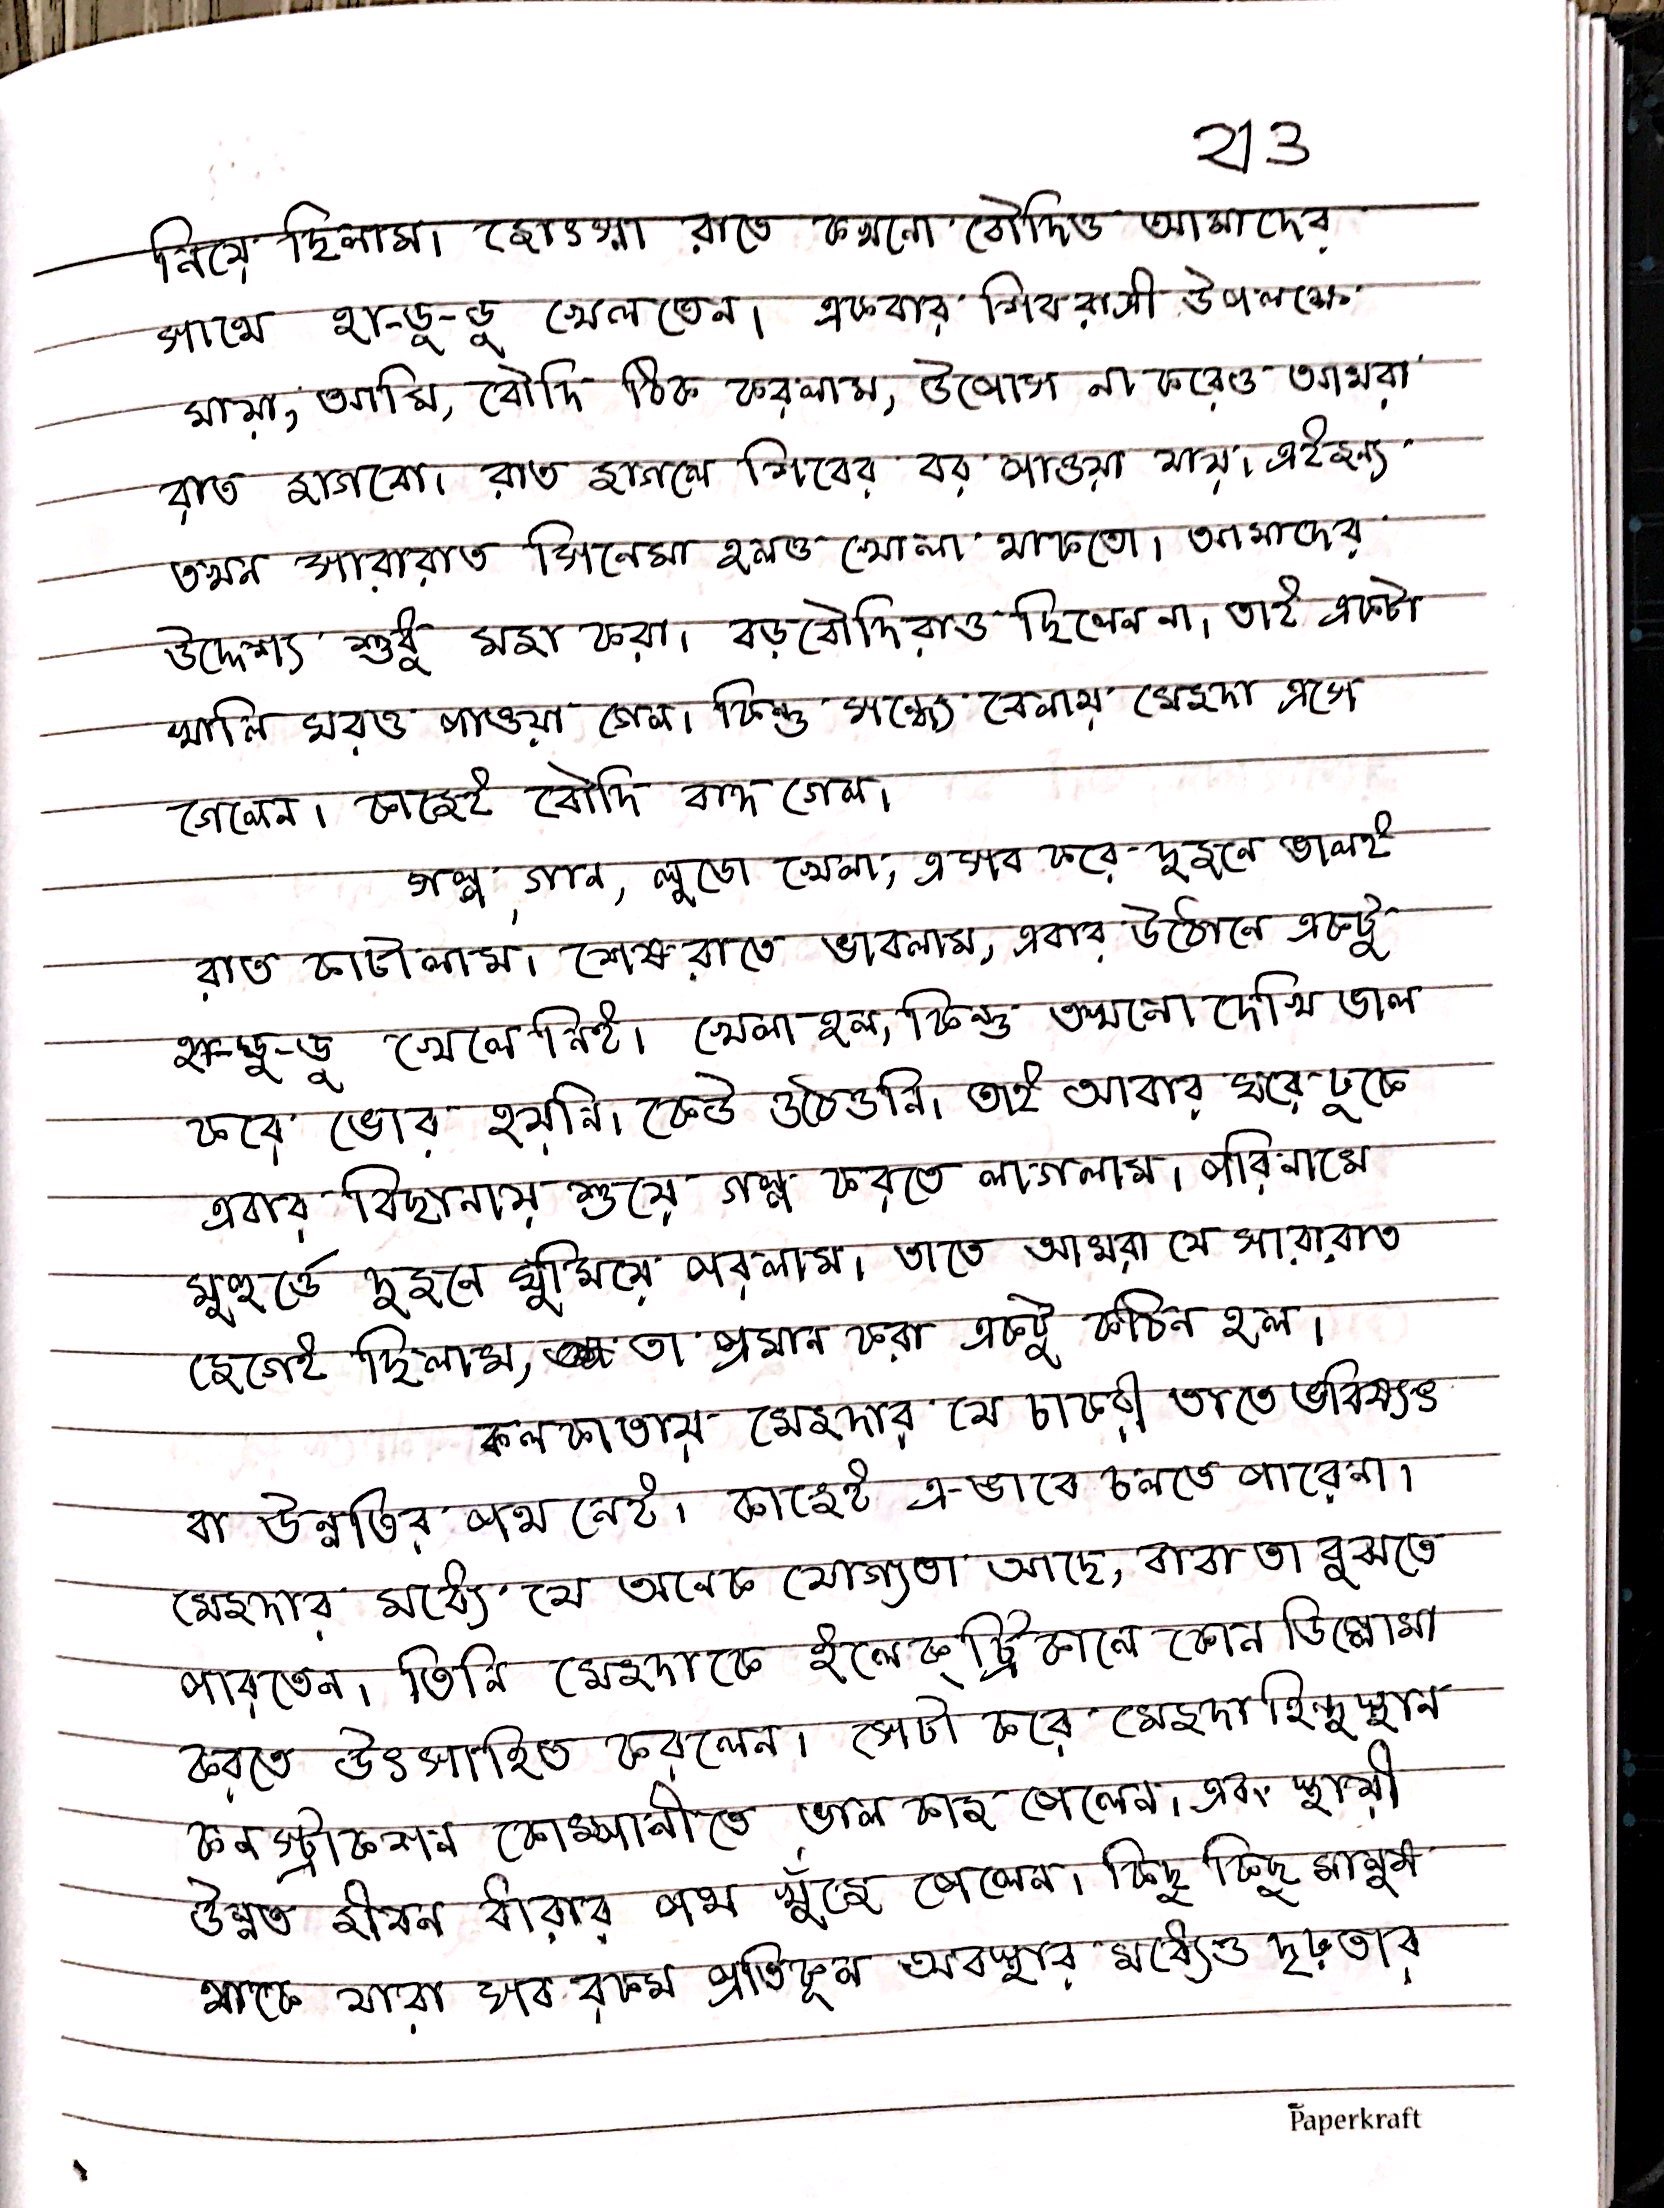 ২৷৩
নিয়ে ছিলাম। জোৎস্না রাতে কখনো বৌদিও আমাদের
সাথে হা-ডু-ডু খেলতেন। একবার শিবরাত্রী উপলক্ষে
মায়া, আমি, বৌদি ঠিক করলাম, উপোস না করেও আমরা
রাত জাগবো। রাত জাগলে শিবের বর পাওয়া যায়। এইজন্য
তখন সারারাত সিনেমা হলও খোলা থাকতো। আমাদের
উদ্দেশ্য শুধু মজা করা। বড়বৌদিরাও ছিলেন না। তাই একটা
খালি ঘরও পাওয়া গেল। কিন্তু সন্ধ্যে বেলায় মেজদা এসে
গেলেন। কাজেই বৌদি বাদ গেল।
গল্প, গান, লুডো খেলা, এসব করে দুজনে ভালই
রাত কাটালাম। শেষরাতে ভাবলাম, এবার উঠোনে একটু
হা-ডু-ডু খেলে নিই। খেলা হল, কিন্তু তখনো দেখি ভাল
করে ভোর হয়নি। কেউ ওঠেওনি। তাই আবার ঘরে ঢুকে
এবার বিছানায় শুয়ে গল্প করতে লাগলাম। পরিনামে
মুহুর্ত্তে দুজনে ঘুমিয়ে পরলাম। তাতে আমরা যে সারারাত
জেগেই ছিলাম, তা প্রমান করা একটু কঠিন হল।
কলকাতায় মেজদার যে চাকরী তাতে ভবিষ্যৎ
বা উন্নতির পথ নেই। কাজেই এ-ভাবে চলতে পারেনা।
মেজদার মধ্যে যে অনেক যোগ্যতা আছে, বাবা তা বুঝতে
পারতেন। তিনি মেজদাকে ইলেক্ট্রিকালে কোন ডিপ্লোমা
করতে উৎসাহিত করলেন। সেটা করে মেজদা হিন্দুস্থান
কনস্ট্রাকশন কোম্পানীতে ভাল কাজ পেলেন। এবং স্থায়ী
উন্নত জীবন ধারার পথ খুঁজে পেলেন। কিছু কিছু মানুষ
থাকে যারা সব রকম প্রতিকূল অবস্থার মধ্যেও দৃঢ়তার
Paperkraft